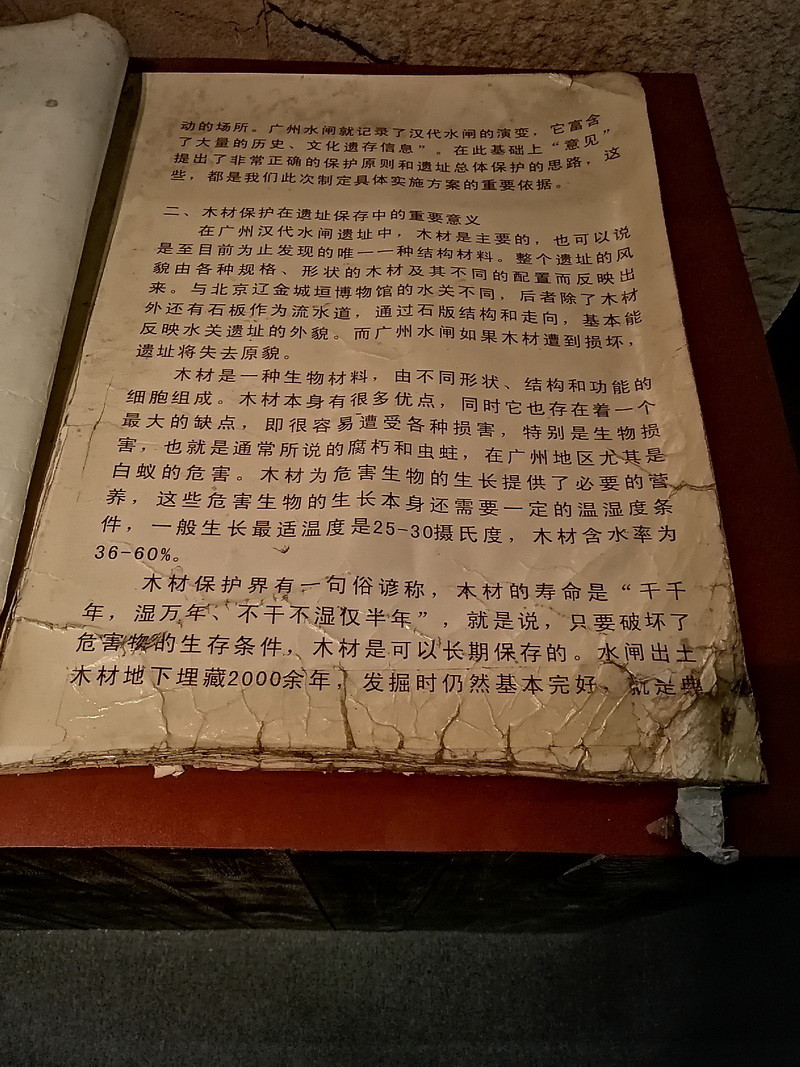 动的场所。广州水闸就记录了汉代水闸的演变，它富含
了大量的历史、文化遗存信息”。在此基础上“意见”
提出了非常正确的保护原则和遗址总体保护的思路，这
些，都是我们此次制定具体实施方案的重要依据。
二、木材保护在遗址保存中的重要意义
在广州汉代水闸遗址中，木材是主要的，也可以说
是至目前为止发现的唯一一种结构材料。整个遗址的风
貌由各种规格、形状的木材及其不同的配置而反映出
来。与北京辽金城垣博物馆的水关不同，后者除了木材
外还有石板作为流水道，通过石版结构和走向，基本能
反映水关遗址的外貌。而广州水闸如果木材遭到损坏，
遗址将失去原貌。
木材是一种生物材料，由不同形状、结构和功能的
细胞组成。木材本身有很多优点，同时它也存在着一个
最大的缺点，即很容易遭受各种损害，特别是生物损
害，也就是通常所说的腐朽和虫蛀，在广州地区尤其是
白蚁的危害。木材为危害生物的生长提供了必要的营
养，这些危害生物的生长本身还需要一定的温湿度条
件，一般生长最适温度是25-30摄氏度，木材含水率为
36-60%。
木材保护界有一句俗谚称，木材的寿命是“干千
年，湿万年、不干不湿仅半年”，就是说，只要破坏了
危害物的生存条件，木材是可以长期保存的。水闸出土
木材地下埋藏2000余年，发掘时仍然基本完好、就是典